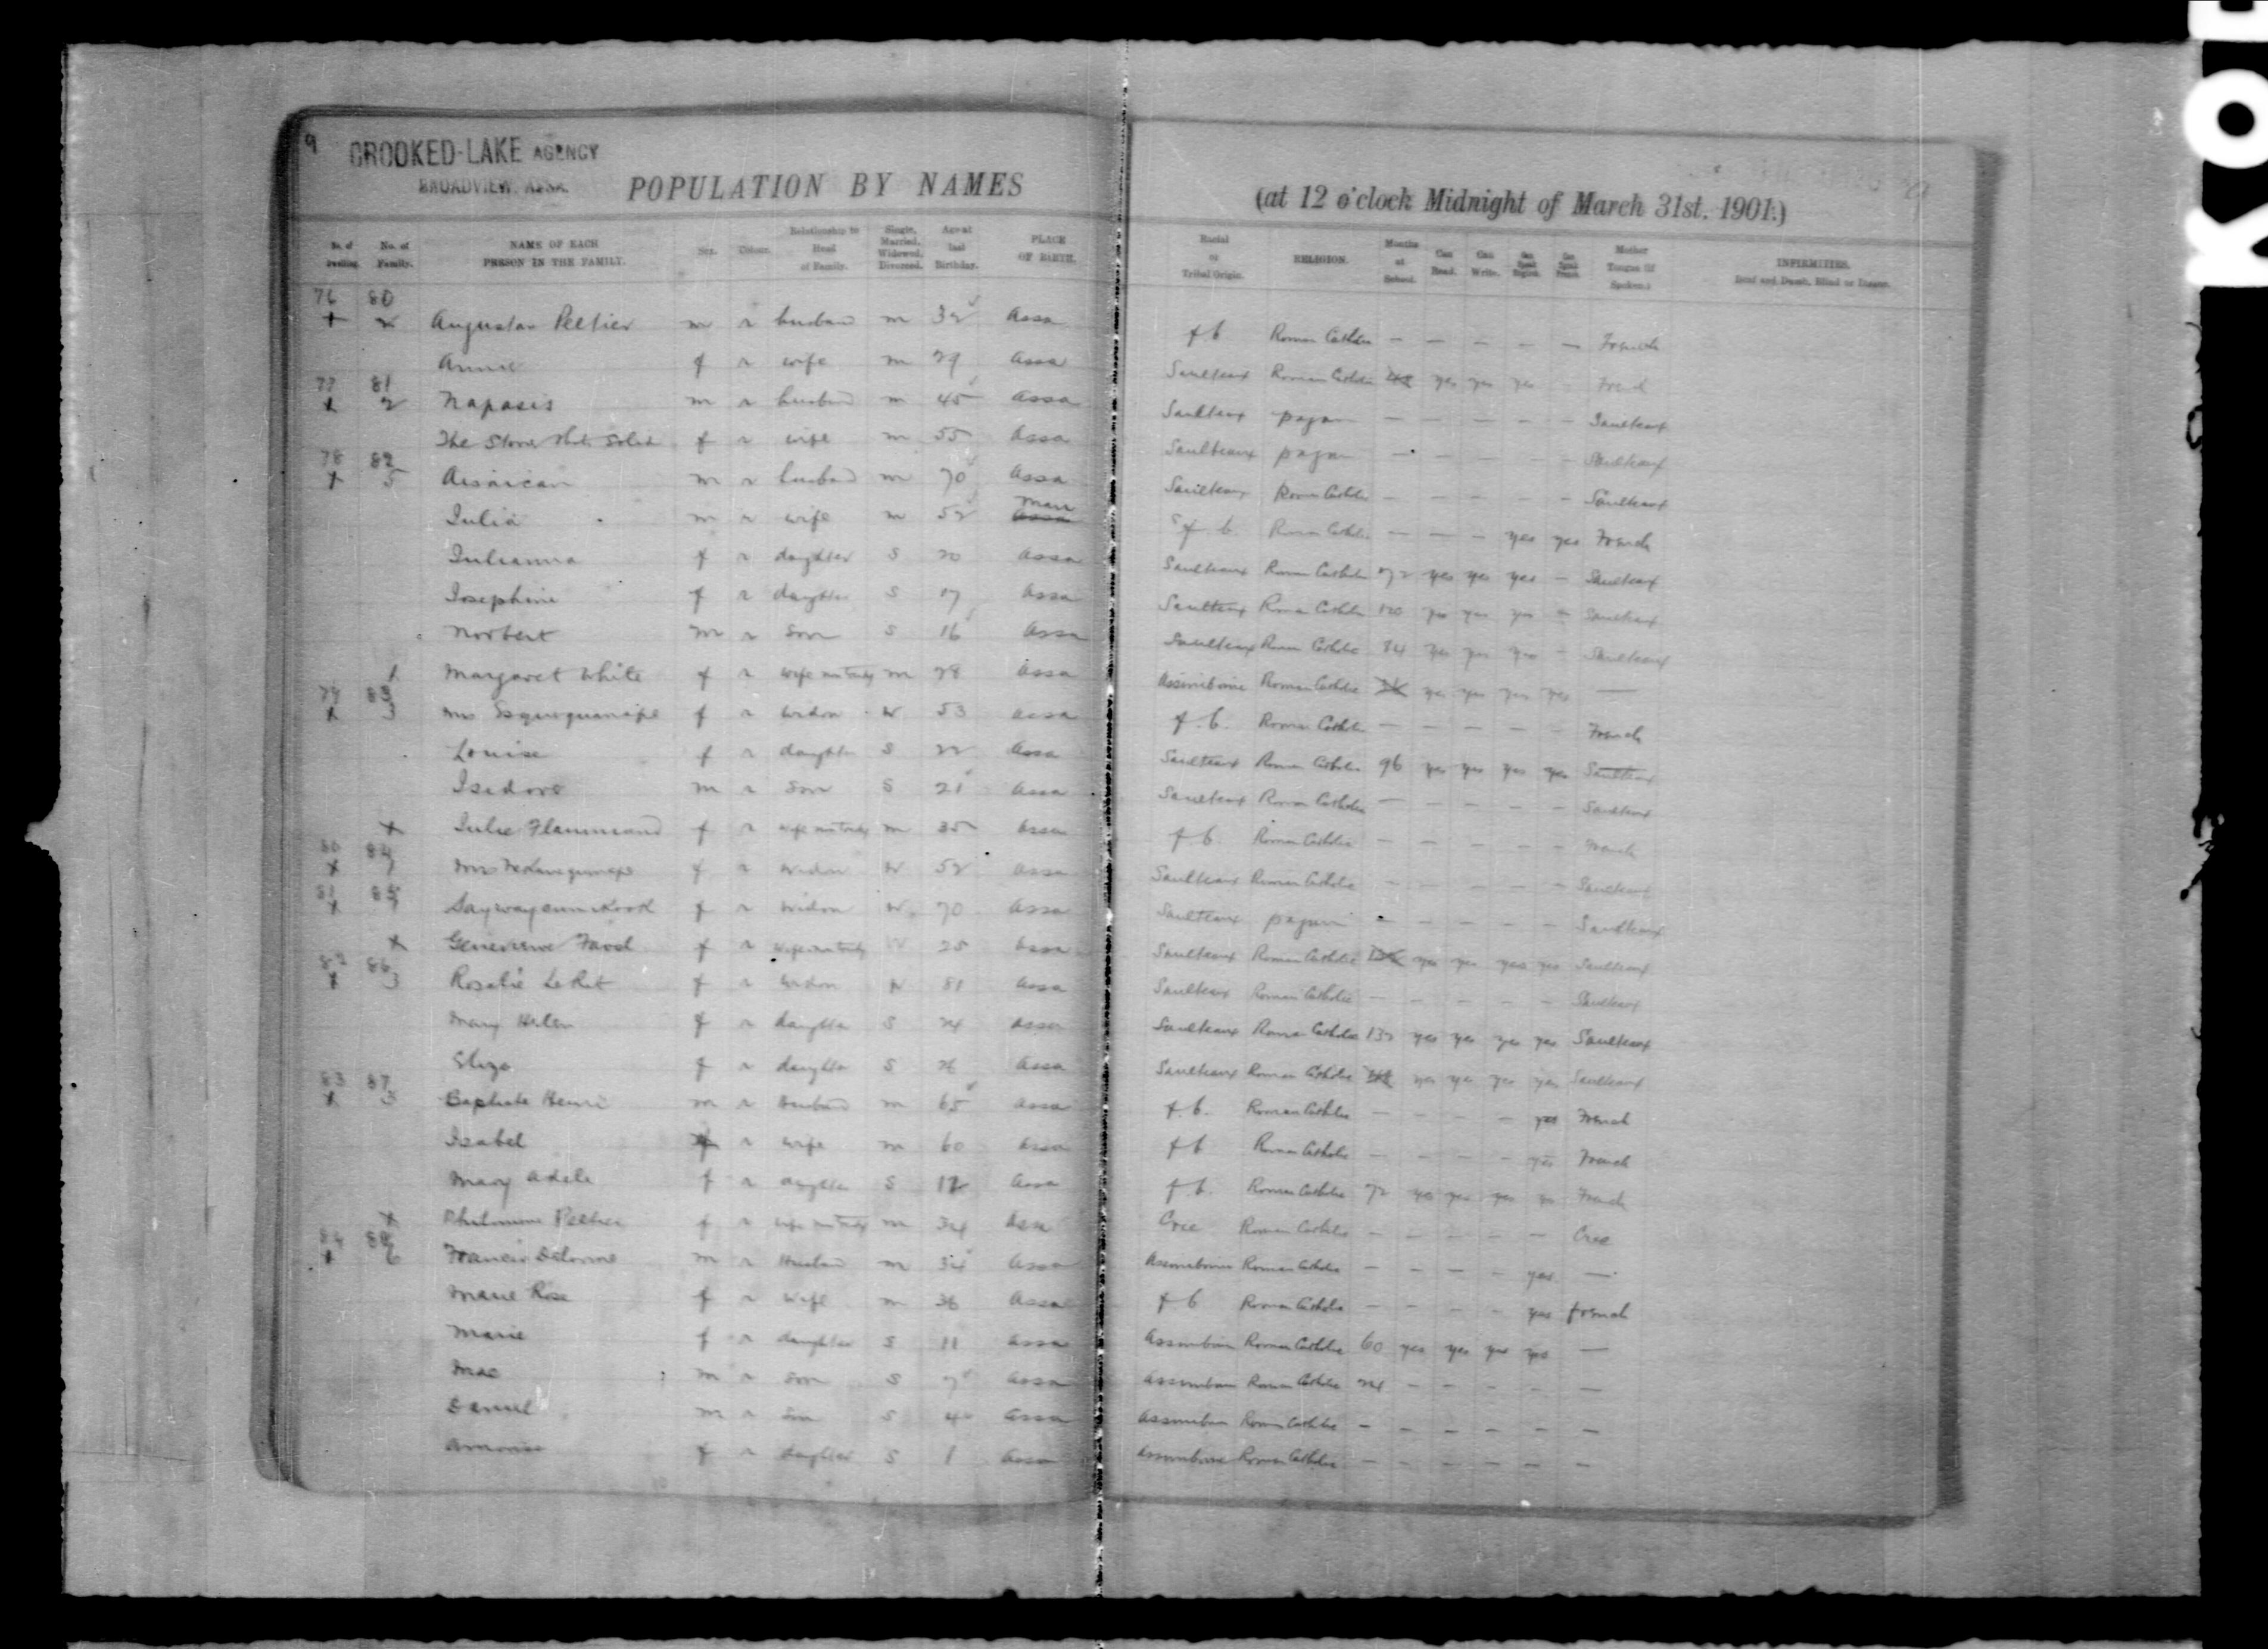 9
CROOKED-LAKE AGENCY
BROADVIEW, ASSA.
POPULATION BY NAMES
(at 12 o'clock Midnight of March 31st. 1901.)
No. of Dwelling. No. of Family. NAME OF EACH PERSON IN THE FAMILY. Sex. Colour. Relationship to Head of Family. Single, Married, Widowed, Divorced. Age at last Birthday. PLACE OF BIRTH. Racial or Tribal Origin. RELIGION. Months at School. Can Read. Can Write. Can Speak English. Can Speak French. Mother Tongue (if Spoken.) INFIRMITIES. Deaf and Dumb, Blind or Insane.
76 80 Peltier m r husband m 32 Assa f b Roman Catholic — — — — — French
Annie f r wife m 29 Assa Saulteaux Roman Catholic yes yes yes - French
77 81 2 Napasis m r husband m 45 Assa Saulteaux pagan — — — — — Saulteaux
The Stone f r wife m 55 Assa Saulteaux pagan — — — — — Saulteaux
78 82 5 m r husband m 70 Assa Saulteaux Roman Catholic — — — — — Saulteaux
Julia m r wife m 52 f b. Roman Catholic — — — yes yes French
Julianna f r daughter S 20 Assa Saulteaux Roman Catholic 72 yes yes yes — Saulteaux
Josephine f r daughter S 17 Assa Saulteaux Roman Catholic 120 yes yes yes — Saulteaux
Norbert m r son S 16 Assa Saulteaux Roman Catholic 84 yes yes yes — Saulteaux
1 Margaret White f r m 28 Assa Assiniboine Roman Catholic yes yes yes yes —
79 83 3 Mrs f r widow W 53 Assa f. b. Roman Catholic — — — — — French
Louise f r daughter S 22 Assa Saulteaux Roman Catholic 96 yes yes yes yes Saulteaux
Isidore m r son S 21 Assa Saulteaux Roman Catholic — — — — — Saulteaux
Julie f r m 35 Assa f b. Roman Catholic — — — — — French
80 84 Mrs f r widow W 52 Assa Saulteaux Roman Catholic — — — — — Saulteaux
81 85 f r widow W. 70 Assa Saulteaux pagan — — — — — Saulteaux
Genevieve f r 25 Assa Saulteaux Roman Catholic yes yes yes yes Saulteaux
82 86 3 Rosalie f r widow W 81 Assa Saulteaux Roman Catholic — — — — — Saulteaux
Mary Helen f r daughter S 24 Assa Saulteaux Roman Catholic 132 yes yes yes yes Saulteaux
Eliza f r daughter S 26 Assa Saulteaux Roman Catholic yes yes yes yes Saulteaux
83 87 3 Baptiste Henri m r Husband m 65 Assa f. b. Roman Catholic — — — — yes French
Isabel f r wife m 60 Assa f b Roman Catholic — — — — yes French
Mary Adele f r daughter S 12 Assa f b. Roman Catholic 72 yes yes yes French
Philomene Peltier f r m 34 Assa Cree Roman Catholic — — — — — Cree
84 88 6 Francis Delorme m r Husband m 34 Assa Assiniboine Roman Catholic — — — — yes —
Marie Rose f r wife m 36 Assa f b Roman Catholic — — — — yes french
Marie f r daughter S 11 Assa Assiniboine Roman Catholic 60 yes yes yes yes —
m r son S 7 Assa Assiniboine Roman Catholic 24 — — — — —
Daniel m r son S 4 Assa Assiniboine Roman Catholic — — — — — —
f r daughter S 1 Assa Assiniboine Roman Catholic — — — — — —